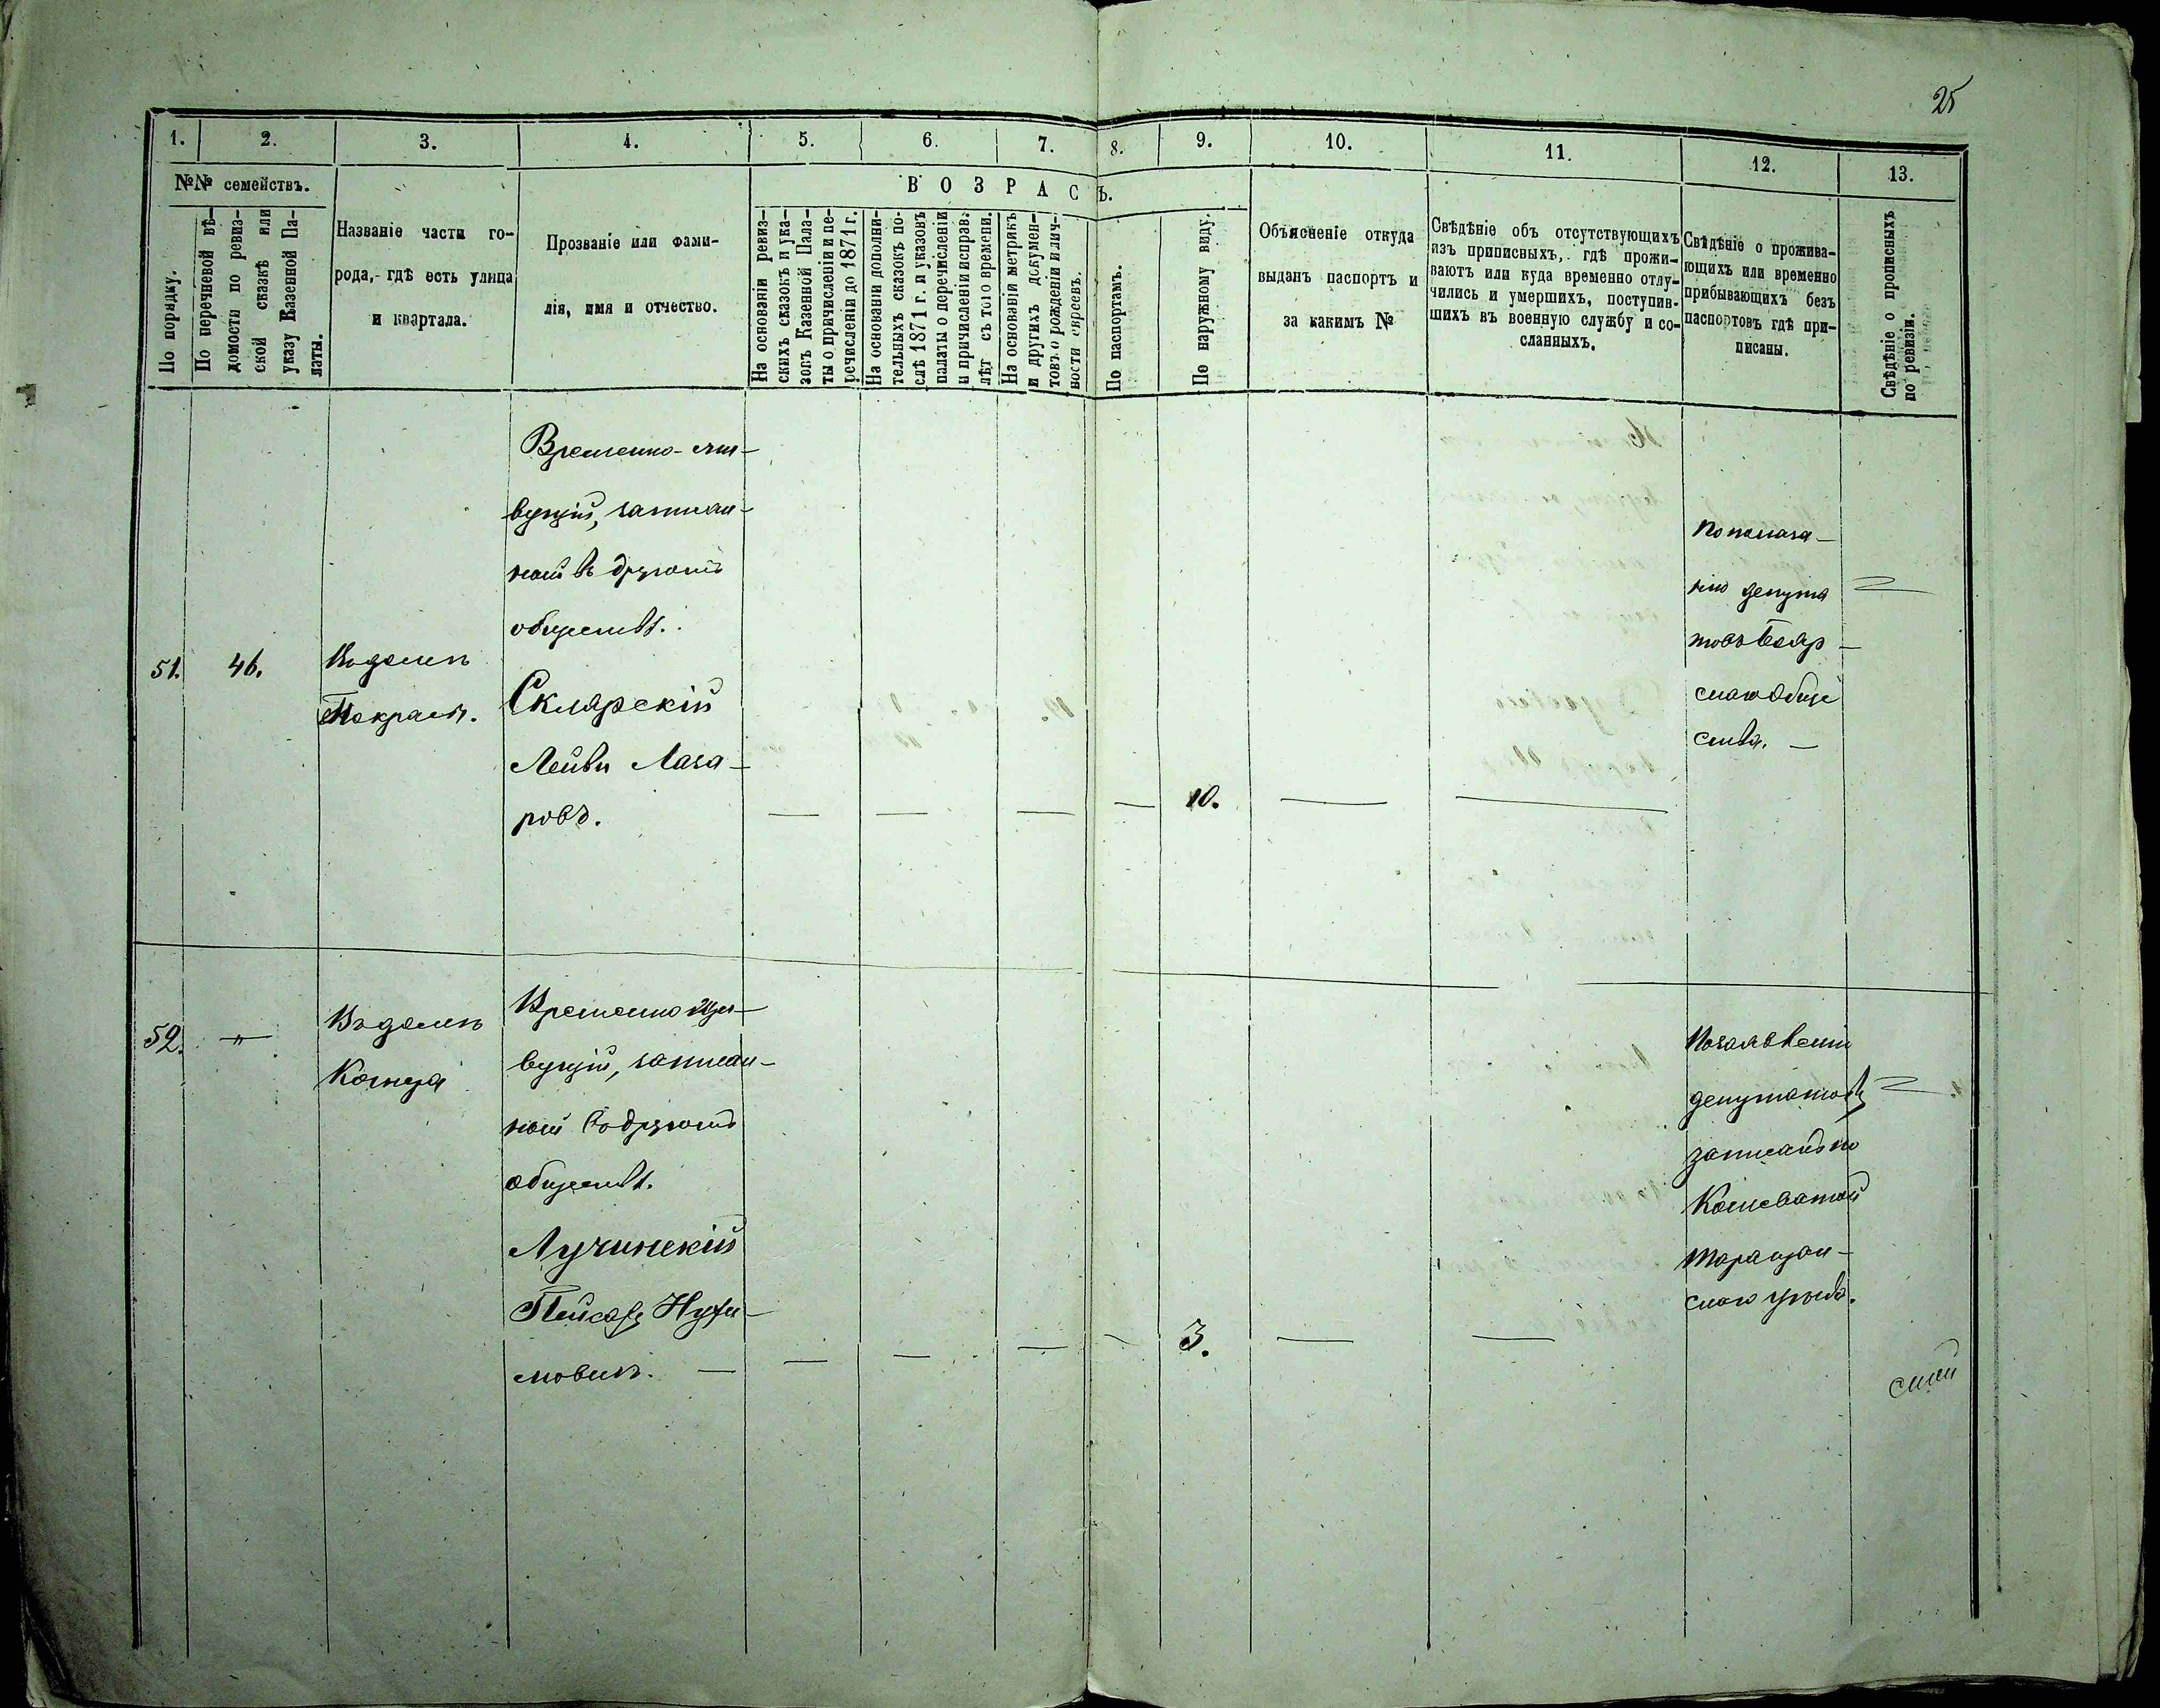 25
1. 2. 3. 4. 5. 6. 7. 8. 9. 10. 11. 12. 13.
№№ семействъ.
ВОЗРАСЪ.
По порядку.
По перечневой вѣ-
домости по ревиз-
ской сказкѣ или
указу Казенной Па-
латы.
Названіе части го-
рода, гдѣ есть улица
и квартала.
Прозваніе или фами-
лія, имя и отчество.
На основаніи ревиз-
скихъ сказокъ и ука-
зокъ Казенной Пала-
ты о причисленіи и пе-
речисленіи до 1871 г.
На основаніи дополни-
тельныхъ сказокъ по-
слѣ 1871 г. и указовъ
палаты о перечисленіи
и причисленіи исправ.
лѣт съ того времени.
На основаніи метрикъ
и другихъ докумен-
товъ о рожденіи и лич-
ности евреевъ.
По паспортамъ.
По наружному виду.
Объясненіе откуда
выданъ паспортъ и
за какимъ №
Свѣдѣніе объ отсутствующихъ
изъ приписныхъ, гдѣ прожи-
ваютъ или куда временно отлу-
чились и умершихъ, поступив-
шихъ въ военную службу и со-
сланныхъ.
Свѣдѣніе о прожива-
ющихъ или временно
прибывающихъ безъ
паспортовъ гдѣ при-
писаны.
Свѣдѣніе о прописныхъ
по ревизіи.
51. 46.
Въ домѣ
Временно-жи-
вущій, записан-
ный въ другомъ
обществѣ.
Склярскій
Лейви Лаза-
ровъ.
10.
По показа-
нію депута
товъ
скаго Обще
ства.
52. "
Въ домѣ
Временно жи-
вущій, записан-
ный въ другомъ
обществѣ.
Лучинскій
Пейсахъ Нухи-
мовичъ.
3.
По заявленію
депутатовъ
записанъ по
Кошеватой
Таращан-
скаго уѣзда.